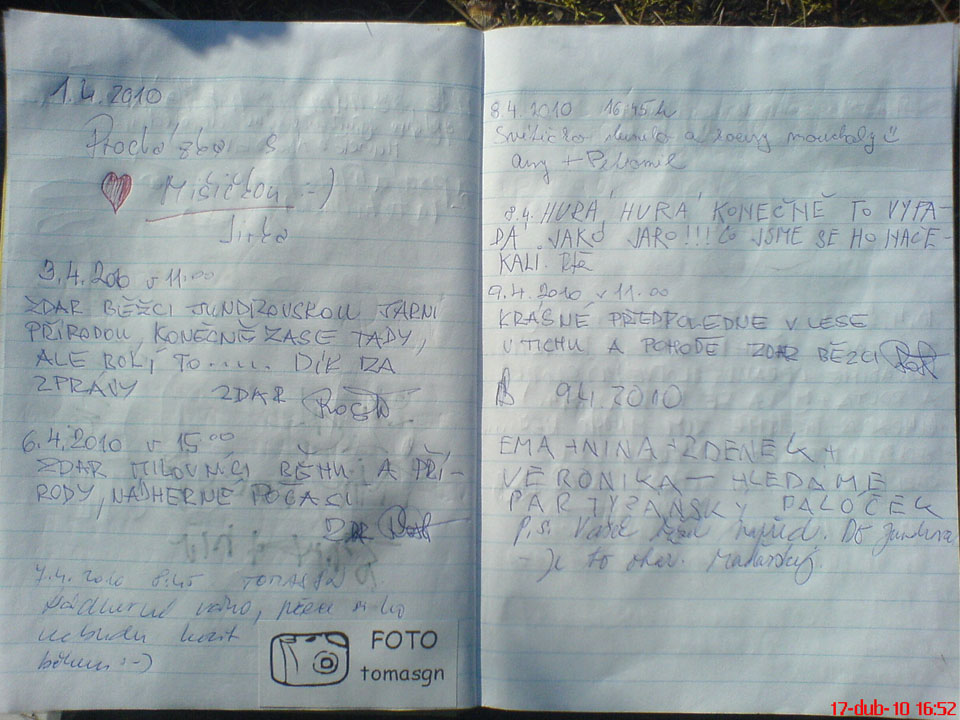 1.4.2010
Procházka s
Mišičkou :-)
Jirka
3.4.200 v 11.00
ŽDAR BĚŽCI JUNDROVSKOU JARNÍ
PŘÍRODOU, KONEČNĚ ZASE TADY,
ALE BOLÍ TO..... DÍK ZA
ZPRAVY ZDAR
6.4.2010 v 15.00
ZDAR MILOVNÍCI BĚHU A PŘÍ-
RODY, NÁDHERNÉ POČASÍ
ZDAR
7.4.2010 8:45 TOMASGN
Nádherné ráno,
nebudu kazit
během :-)
FOTO
tomasgn
8.4.2010 16,45h
a
Amy +
8.4. HURÁ, HURÁ KONEČNĚ TO VYPA-
DÁ JAKO JARO!!! CO JSME SE HO NAČE-
KALI.
9.4.2010 v 11.00
KRÁSNÉ PŘEDPOLEDNE V LESE
V TICHU A POHODĚ ZDAR BĚŽCI
9.4.2010
EMA+NINA+ZDENEK+
VERONIKA – HLEDÁME
PARTYZÁNSKÝ PALOUČEK
P.S. Do
- Je to
17-dub-10 16:52